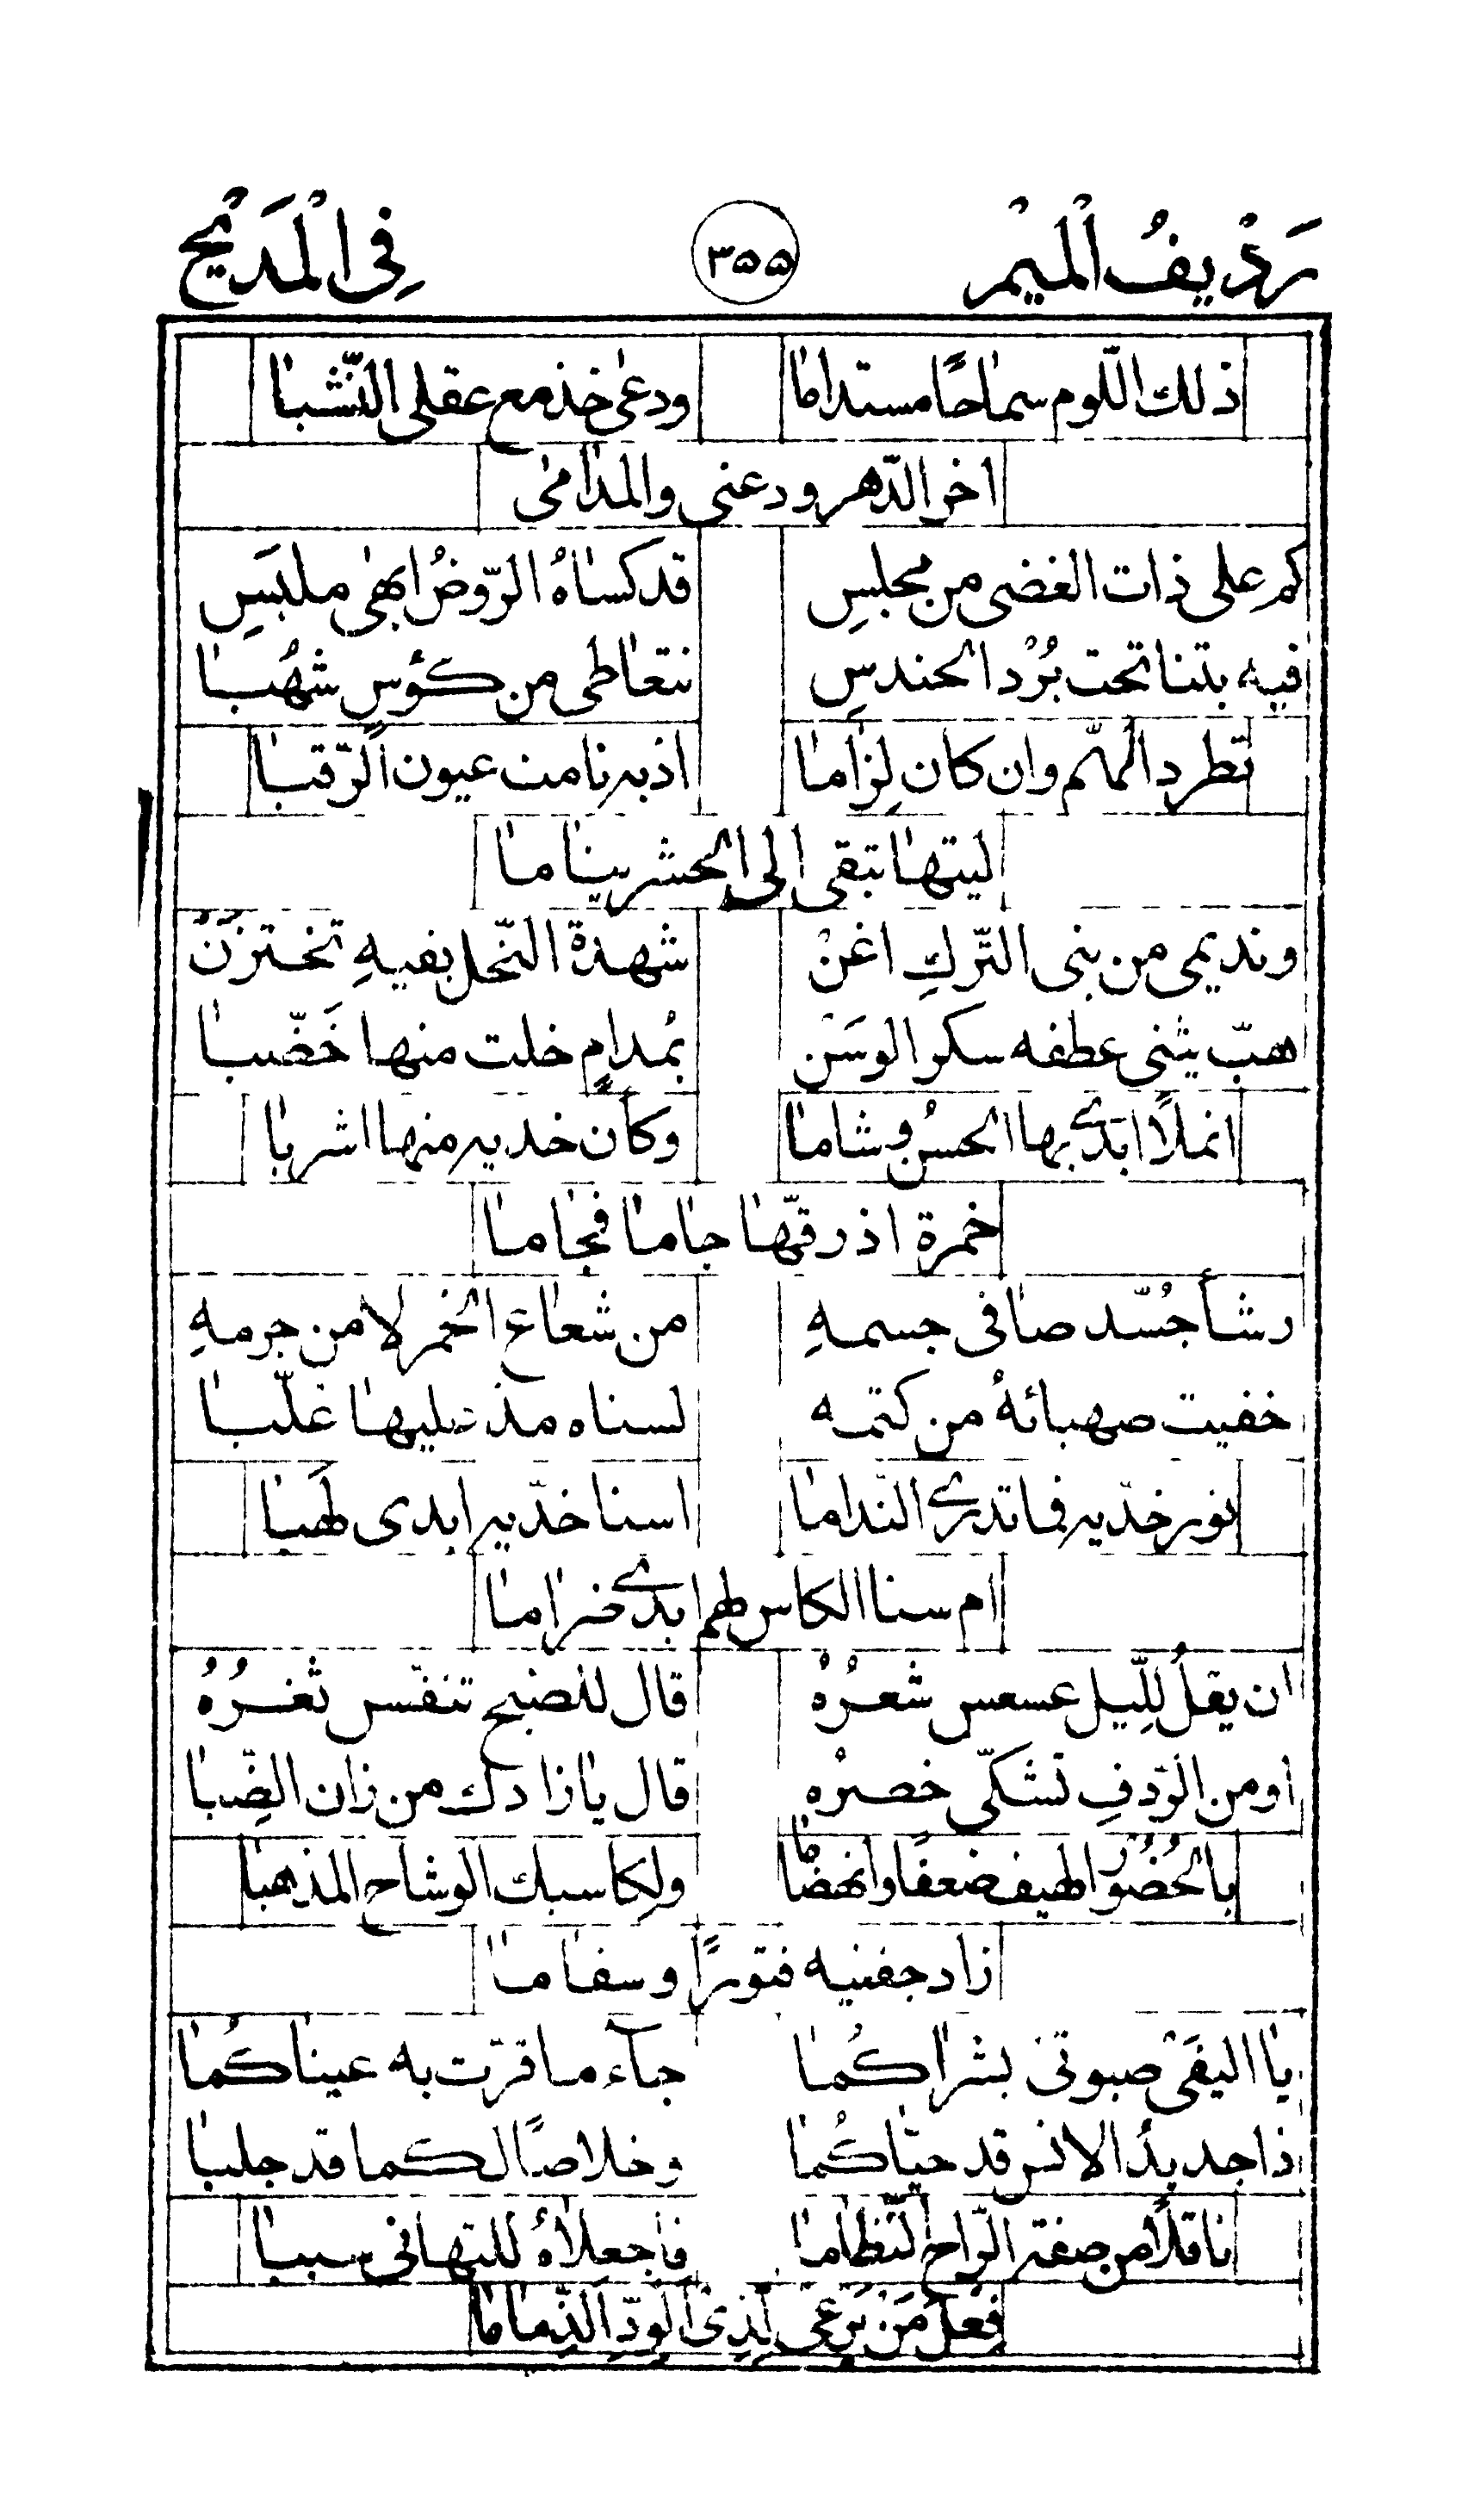 رَدِيْفُ الْمِيْمِ ٣٥٥ فِى الْمَدِيْحِ
ذلك اللّوم سماحًا مستداما ودعى خذ مع عقلى النّشبا
اخر الدّهر ودعنى والمدامى
كم على ذات الغضى من مجلسِ قد كساهُ الرّوضُ ابهى ملبسِ
فيه بتنا تحت بُرْد الحندسِ نتعاطى من كؤسٍ شهُبا
تطرد الهمّ وان كان لِزاما اذ برزنا من عيون الرّقبا
ليتها تبقى الى الحشر نياما
ونديمى من بنى التّركِ اغنْ شهدة النّحل بفيهِ تختزنْ
هبّ يثنى عطفه سكر الوسَنْ بمُدامٍ خلت منها خَضّبا
انملًا ابدى بها الحسنُ وشاما وكأن خديه منها اشربا
خمرة اذ رقّها جاما فجاما
رشأ جُسّد صافى جسمهِ من شعاع الخمر لا من جرمهِ
خفيت صهبائهُ من كتمه لسناه مذ عليها غلّبا
نور خدّيه فما تدرى النّداما اسنا خدّيه ابدى لهَبا
ام سنا الكاس لهم ابدى ضراما
ان يقلْ للّيل عسعس شعرُهْ قال للصّبح تنفّس ثغرُهُ
او من الرّدفِ تشكّى خصرهْ قال يا زادك من زان الصِّبا
بالخُصُور الهيف ضعفًا وانهضاما ولكاسبك الوشاح المذهبا
زاد جفنيه فتورًا وسقاما
يا اليفَىْ صبوتى بشراكُما جآء ما قرّت به عيناكُما
ذا جديدُ الانس قد حيّاكُما وخلاصًا لكما قد جلبا
ناقلًا من صفة الرّاح النّظاما فاجعلاهُ للتهانى سببا
فِعْلَ مَنْ يَرْعَى لِذِى الْوِدِّ الذِّماما